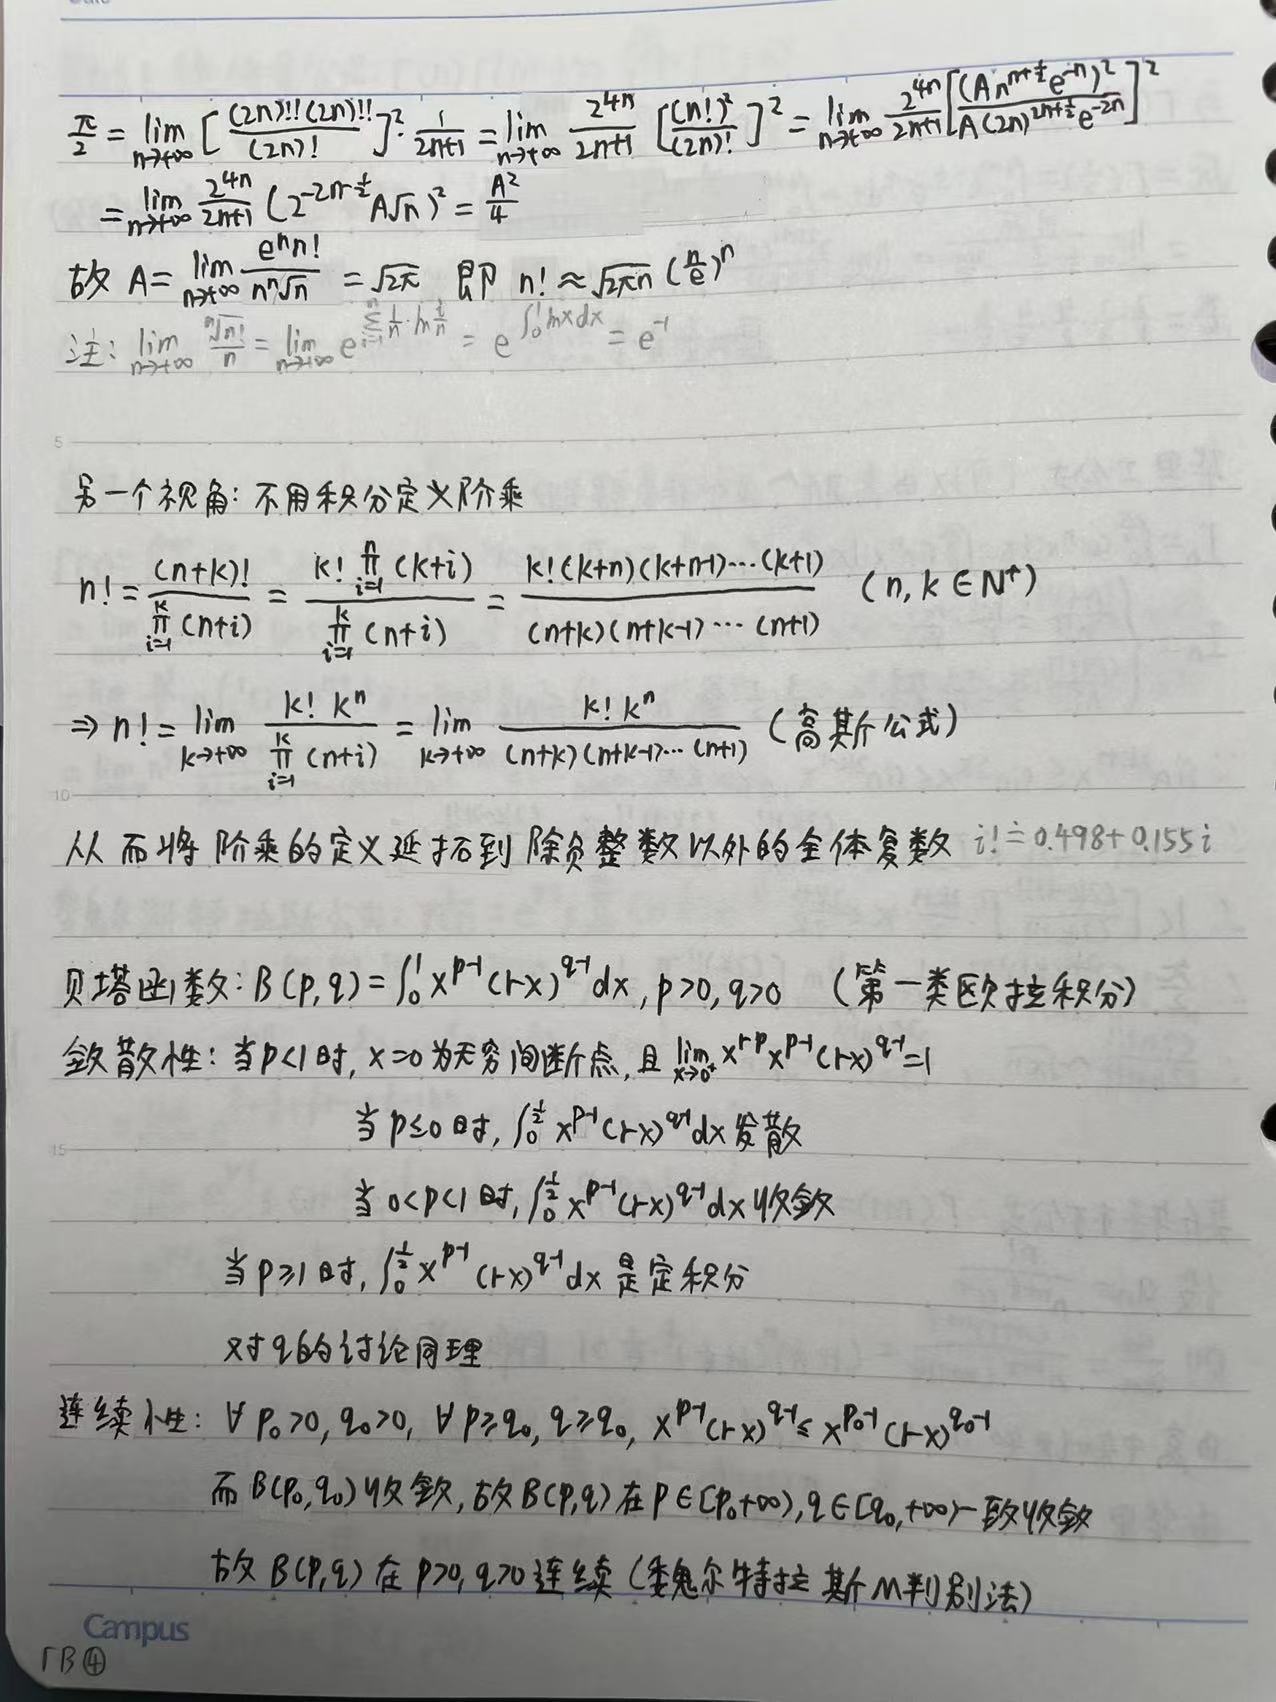 π/2 = lim_{n→+∞} [(2n)!!(2n)!!/(2n)!]²·1/(2n+1) = lim_{n→+∞} 2^{4n}/(2n+1) [(n!)²/(2n)!]² = lim_{n→+∞} 2^{4n}/(2n+1) [(A n^{n+1/2} e^{-n})²/(A(2n)^{2n+1/2} e^{-2n})]²
= lim_{n→+∞} 2^{4n}/(2n+1) (2^{-2n-1/2} A√n)² = A²/4
故 A = lim_{n→+∞} eⁿn!/(nⁿ√n) = √2π 即 n! ≈ √2πn (n/e)ⁿ
注: lim_{n→+∞} ⁿ√n!/n = lim_{n→+∞} e^{∑_{i=1}^{n} 1/n·ln i/n} = e^{∫₀¹lnxdx} = e⁻¹
5
另一个视角: 不用积分定义阶乘
n! = (n+k)!/∏_{i=1}^{k}(n+i) = k!∏_{i=1}^{n}(k+i)/∏_{i=1}^{k}(n+i) = k!(k+n)(k+n-1)⋯(k+1)/(n+k)(n+k-1)⋯(n+1) (n, k ∈ N⁺)
⇒ n! = lim_{k→+∞} k! kⁿ/∏_{i=1}^{k}(n+i) = lim_{k→+∞} k! kⁿ/(n+k)(n+k-1)⋯(n+1) (高斯公式)
10
从而将阶乘的定义延拓到除负整数以外的全体复数 i!≐0.498+0.155i
贝塔函数: B(p,q) = ∫₀¹ x^{p-1}(1-x)^{q-1}dx, p>0, q>0 (第一类欧拉积分)
敛散性: 当p<1时, x=0为无穷间断点, 且 lim_{x→0⁺} x^{1-p}x^{p-1}(1-x)^{q-1}=1
当p≤0时, ∫₀^{1/2} x^{p-1}(1-x)^{q-1}dx发散
15
当0<p<1时, ∫₀^{1/2} x^{p-1}(1-x)^{q-1}dx收敛
当p≥1时, ∫₀^{1/2} x^{p-1}(1-x)^{q-1}dx是定积分
对q的讨论同理
连续性: ∀p₀>0, q₀>0, ∀p≥q₀, q≥q₀, x^{p-1}(1-x)^{q-1} ≤ x^{p₀-1}(1-x)^{q₀-1}
而B(p₀,q₀)收敛, 故B(p,q)在p∈[p₀,+∞), q∈[q₀,+∞)一致收敛
故B(p,q)在p>0, q>0连续 (委魏尔特拉斯M判别法)
Campus
ΓB④